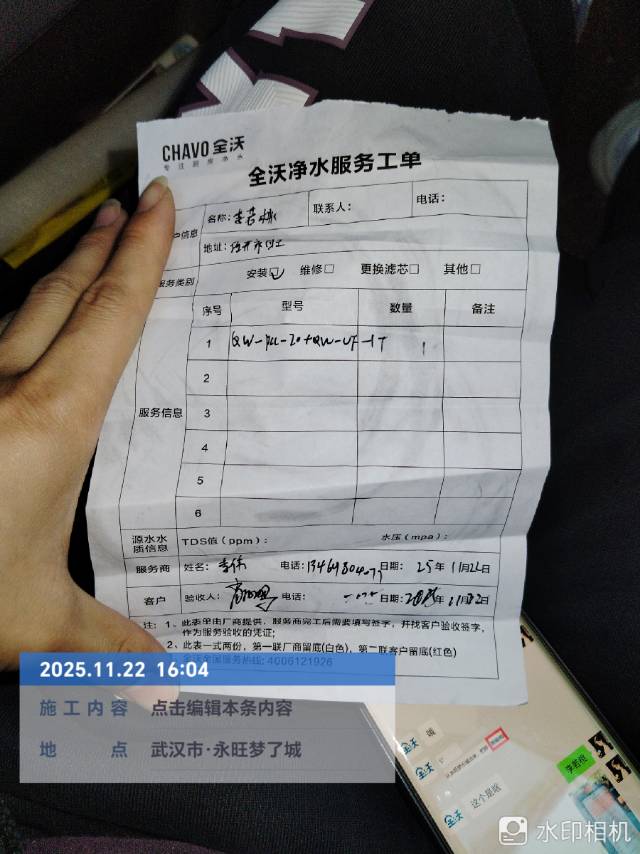 CHAVO 全沃
专注厨房净水
全沃净水服务工单
户信息 名称: 联系人: 电话:
地址:
服务类别 安装☑ 维修□ 更换滤芯□ 其他□
服务信息 序号 型号 数量 备注
1 1
2
3
4
5
6
源水水质信息 TDS值(ppm): 水压(mpa):
服务商 姓名: 李伟 电话: 日期: 25年11月22日
客户 验收人: 电话: 日期:
注: 1、此表里由厂商提供,服务商完工后需要填写签字,并找客户验收签字,
作为服务验收的凭证;
2、此表一式两份,第一联厂商留底(白色),第二联客户留底(红色)
4006121926
2025.11.22 16:04
施工内容 点击编辑本条内容
地点 武汉市·永旺梦了城
全沃 嗯
全沃
全沃 这个是啥
水印相机